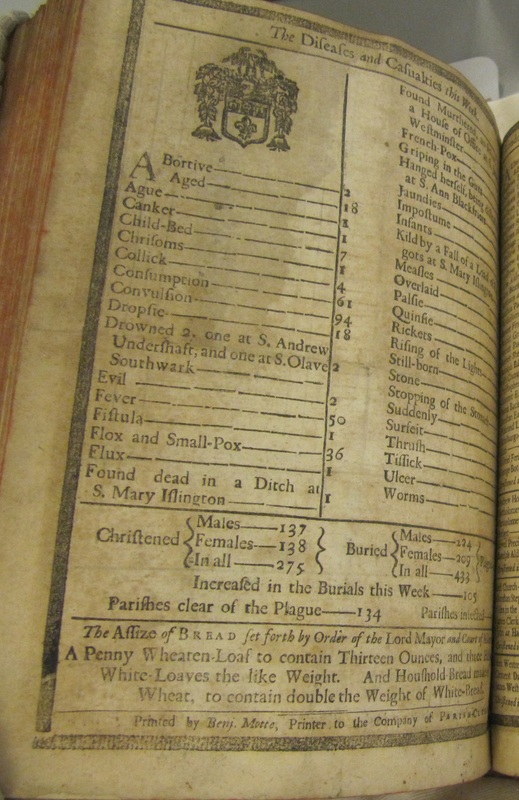 The Diſeaſes and Caſualties this Week
ABortive 2
Aged 18
Ague 1
Canker 1
Child-Bed 7
Chriſoms 1
Collick 4
Conſumption 61
Convulſion 94
Dropſie 18
Drowned 2, one at S. Andrew
Underſhaft, and one at S. Olave
Southwark 2
Evil 2
Fever 50
Fiſtula 1
Flox and Small-Pox 36
Flux 1
Found dead in a Ditch at
S. Mary Iſlington 1
Found Murthered,
a Houſe of Office
Weſtminſter
French-Pox
Griping in the Guts
Hanged herſelf, being
at S. Ann Blackfriers
Jaundies
Impoſtume
Infants
Kild by a Fall of a Load
gots at S. Mary Iſlington
Meaſles
Overlaid
Palſie
Quinſie
Rickets
Riſing of the Lights
Still-born
Stone
Stopping of the Stomach
Suddenly
Surfeit
Thruſh
Tiſſick
Ulcer
Worms
Chriſtened Males 137
Females 138
In all 275
Buried Males 224
Females 209
In all 433
Increaſed in the Burials this Week 105
Pariſhes clear of the Plague 134 Pariſhes
The Aſſize of BREAD ſet forth by Order of the Lord Mayor and Court of
A Penny Wheaten-Loaf to contain Thirteen Ounces, and three
White-Loaves the like Weight. And Houſhold-Bread
Wheat, to contain double the Weight of White-Bread.
Printed by Benj. Motte, Printer to the Company of